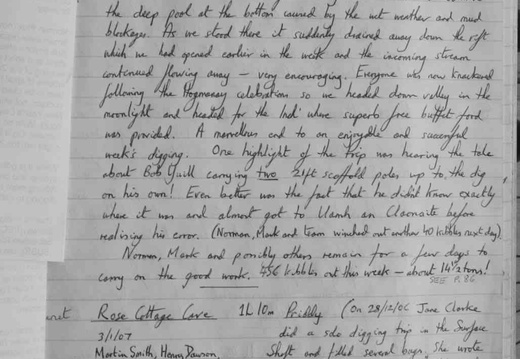 the deep pool at the bottom caused by the wet weather and mud
blockages. As we stood there it suddenly drained away down the rift
which we had opened earlier in the week and the incoming stream
continued flowing away – very encouraging. Everyone was now knackered
following the Hogmanay celebration so we headed down valley in the
moonlight and headed for the Inch' where superb free buffet food
was provided. A marvellous end to an enjoyable and successful
week's digging. One highlight of the trip was hearing the tale
about Bob Yuill carrying two 21ft scaffold poles up to the dig
on his own! Even better was the fact that he didn't know exactly
where it was and almost got to Uamh an Claonaite before
realising his error. (Norman, Mark and team winched out another 40 kibbles next day).
Norman, Mark and possibly others remain for a few days to
carry on the good work. 456 kibbles out this week – about 14½ tons!
SEE P. 86
Rose Cottage Cave 1L 10m Priddy (On 28/12/06 Jane Clarke
3/1/07 did a solo digging trip in the Surface
Martin Smith, Henry Dawson, Shaft and filled several bags, she wrote